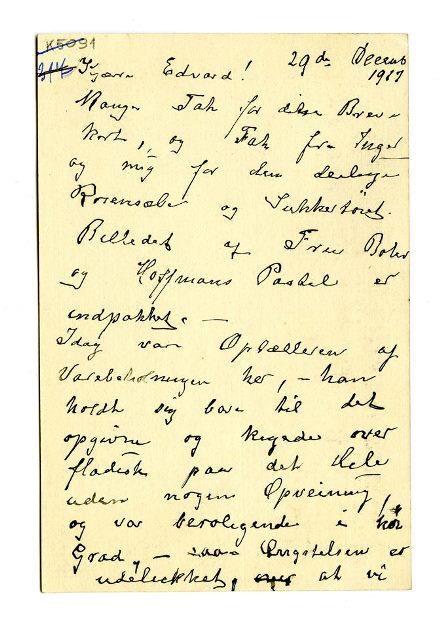 K5091
314
Kjære Edvard! 29de Decemb
1917
Mange Tak for dine Breve
kort, og Tak fra Inger
og mig for den deilige
Rosensæbe og Sukkertøiet.
Billedet af Fru Bohr
og Hoffmans Pastel er
indpakket. —
Idag var Optælleren af
Varebeholningen her, — han
holdt sig bare til det
opgivne og kigede over
fladisk paa det Hele
uden nogen Opveining,
og var beroligende i høi
Grad, — saa Ængstelsen er
udelukket, at vi